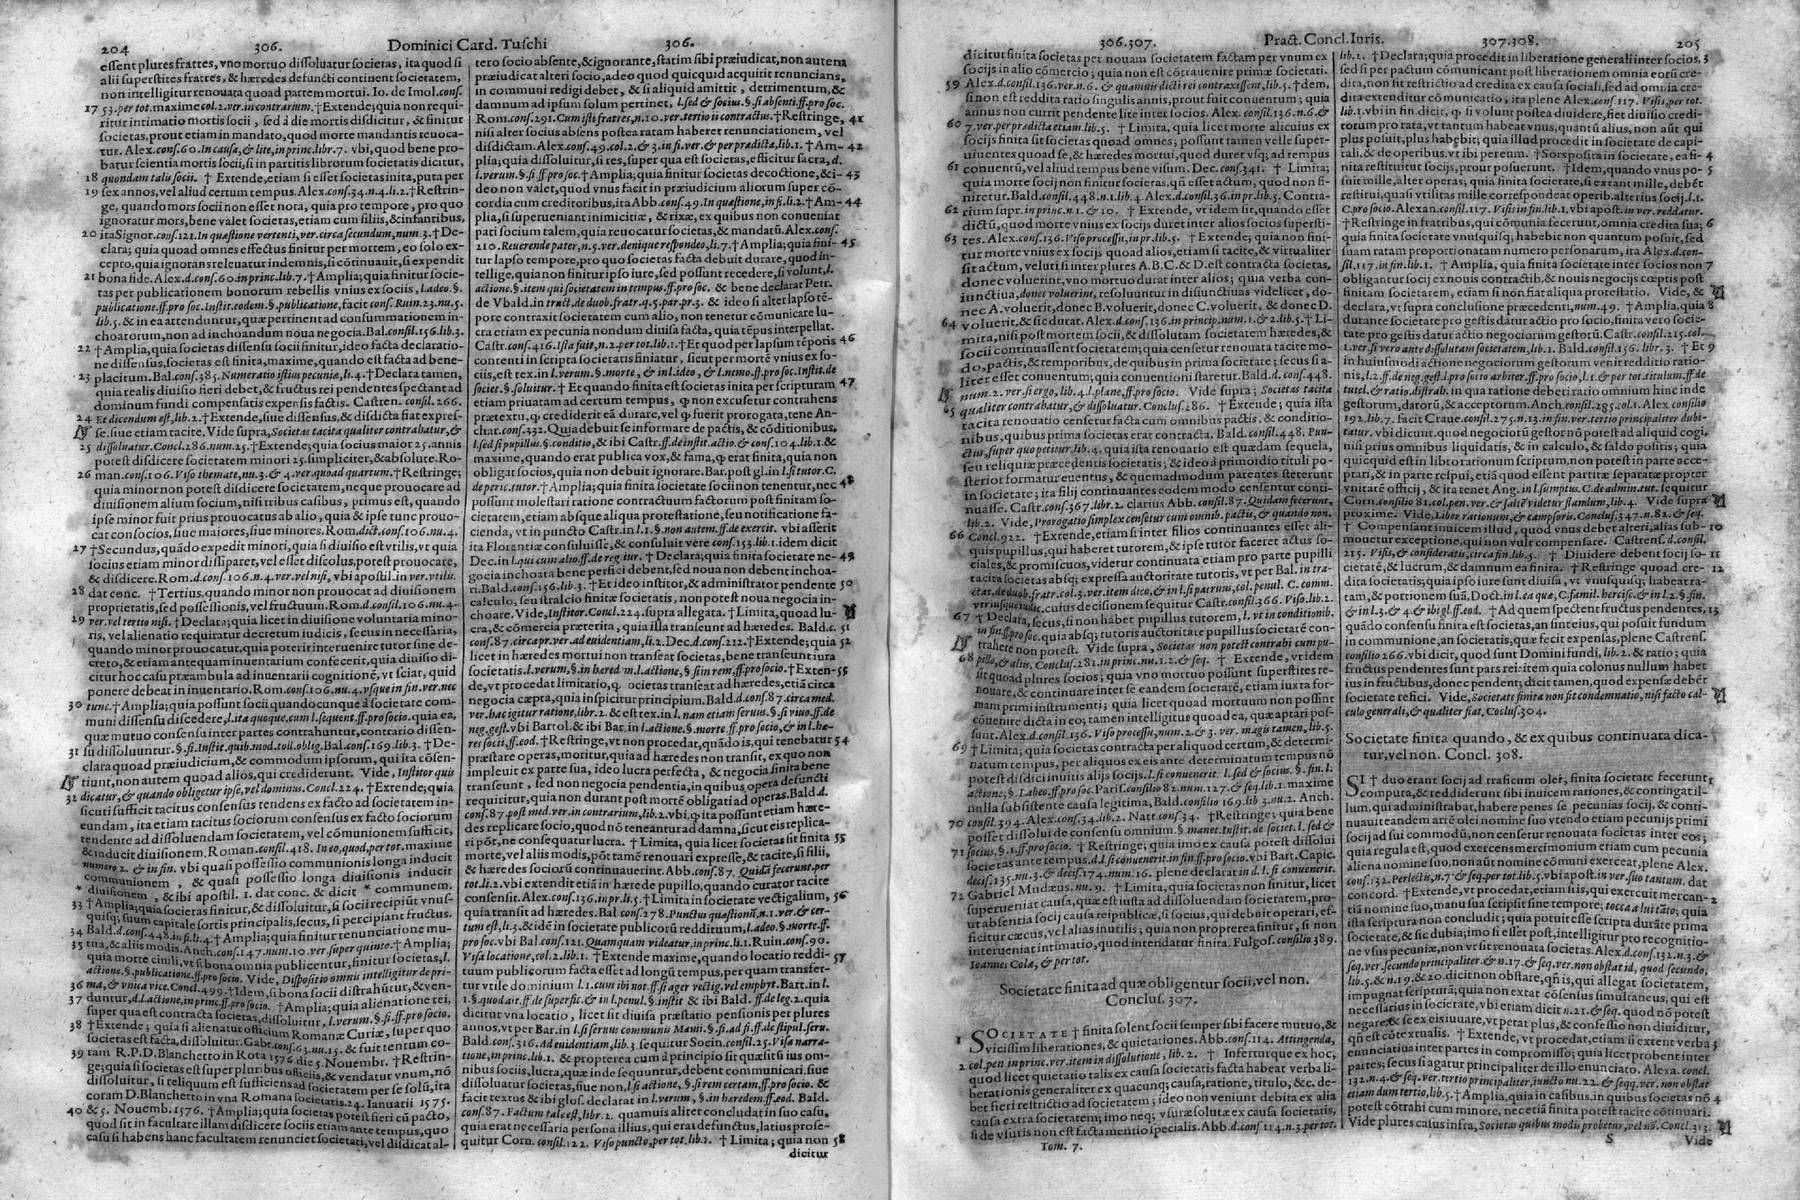 204 306. Dominici Card. Tuschi 306.
essent plures fratres, vno mortuo dissoluatur societas, ita quod si
alii superstites fratres, & hæredes defuncti continent societatem,
non intelligitur renouata quoad partem mortui. Io. de Imol. cons.
17 53. per tot. maxime col. 2. ver. in contrarium. † Extende; quia non requi-
ritur intimatio mortis socii, sed à die mortis disdicitur, & finitur
societas, prout etiam in mandato, quod morte mandantis reuoca-
tur. Alex. cons. 60. In causa, & lite, in princ. libr. 7. vbi, quod bene pro-
batur scientia mortis socii, si in partitis librorum societatis dicitur,
18 quondam talis socii. † Extende, etiam si esset societas inita, puta per
19 sex annos, vel aliud certum tempus. Alex. cons. 34. n. 4. li. 2. † Restrin-
ge, quando mors socii non esset nota, quia pro tempore, pro quo
ignoratur mors, bene valet societas, etiam cum filiis, & infantibus,
20 ita Signor. cons. 121. In quæstione vertenti, ver. circa secundum, num. 3. † De-
clara; quia quoad omnes effectus finitur per mortem, eo solo ex-
cepto, quia ignorans releuatur indemnis, si cõtinuauit, si expendit
21 bona fide. Alex. d. cons. 60. in princ. lib. 7. † Amplia; quia finitur socie-
tas per publicationem bonorum rebellis vnius ex sociis, l. adeo. §.
publicatione. ff. pro soc. Instit. eodem. §. publicatione, facit cons. Ruin. 23. nu. 5.
lib. 5. & in ea attenduntur, quæ pertinent ad consummationem in-
choatorum, non ad inchoandum noua negocia. Bal. consil. 156. lib. 3.
22 † Amplia, quia societas dissensu socii finitur, ideo facta declaratio-
ne dissensus, societas est finita, maxime, quando est facta ad bene-
23 placitum. Bal. cons. 385. Numeratio istius pecuniæ, li. 4. † Declara tamen,
quia realis diuisio fieri debet, & fructus rei pendentes spectant ad
dominum fundi compensatis expensis factis. Castren. consil. 266.
24 Et dicendum est, lib. 2. † Extende, siue dissensus, & disdicta fiat expres-
se, siue etiam tacite. Vide supra, Societas tacita qualiter contrahatur, &
25 dissoluatur. Concl. 286. num. 25. † Extende; quia socius maior 25. annis
potest disdicere societatem minori 25. simpliciter, & absolute. Ro-
26 man. cons. 106. Viso themate, nu. 3. & 4. ver. quoad quartum. † Restringe;
quia minor non potest disdicere societatem, neque prouocare ad
diuisionem alium socium, nisi tribus casibus, primus est, quando
ipse minor fuit prius prouocatus ab alio, quia & ipse tunc prouo-
cat consocios, siue maiores, siue minores. Rom. dict. cons. 106. nu. 4.
27 † Secundus, quãdo expedit minori, quia si diuisio est vtilis, vt quia
socius etiam minor dissiparet, vel esset discolus, potest prouocare,
& disdicere. Rom. d. cons. 106. n. 4. ver. vel nisi, vbi apostil. in ver. vtilis.
28 dat conc. † Tertius, quando minor non prouocat ad diuisionem
proprietatis, sed possessionis, vel fructuum. Rom. d. consil. 106. nu. 4.
29 ver. vel tertio nisi. † Declara; quia licet in diuisione voluntaria mino-
ris, vel alienatio requiratur decretum iudicis, secus in necessaria,
quando minor prouocatur, quia poterit interuenire tutor sine de-
creto, & etiam antequam inuentarium confecerit, quia diuisio di-
citur hoc casu præambula ad inuentarii cognitionẽ, vt sciat, quid
ponere debeat in inuentario. Rom. cons. 106. nu. 4. vsque in fin. ver. nec
30 tunc. † Amplia; quia possunt socii quandocunque à societate com-
muni dissensu discedere, l. ita quoque, cum l. sequent. ff. pro socio. quia ea,
quæ mutuo consensu inter partes contrahuntur, contrario dissen-
31 su dissoluuntur. §. fi. Instit. quib. mod. toll. oblig. Bal. cons. 169. lib. 3. † De-
clara quoad præiudicium, & commodum ipsorum, qui ita consen-
tiunt, non autem quoad alios, qui crediderunt. Vide, Institor quis
32 dicatur, & quando obligetur ipse, vel dominus. Concl. 224. † Extende; quia
sicuti sufficit tacitus consensus tendens ex facto ad societatem in-
eundam, ita etiam tacitus sociorum consensus ex facto sociorum
tendente ad dissoluendam societatem, vel cõmunionem sufficit,
& inducit diuisionem. Roman. consil. 418. In eo, quod, per tot. maxime
numero 2. & in fin. vbi quasi possessio communionis longa inducit
communionem, & quasi possessio longa diuisionis inducit
* diuisionem, & ibi apostil. 1. dat conc. & dicit * communem.
33 † Amplia; quia societas finitur, & dissoluitur, si socii recipiũt vnus-
quisq; suum capitale sortis principalis, secus, si percipiant fructus.
34 Bald. d. cons. 448. in fi. li. 4. † Amplia; quia finitur renunciatione mu-
35 tua, & aliis modis. Anch. cons. 147. num. 10. ver. super quinto. † Amplia;
quia morte ciuili, vt si bona omnia publicentur, finitur societas, l.
actione. §. publicatione. ff. pro socio. Vide, Dispositio omnis intelligitur de pri-
36 ma, & vnica vice. Concl. 499. † Idem, si bona socii distrahũtur, & ven-
37 duntur, d. l. actione, in princ. ff. pro socio. † Amplia; quia alienatione rei,
super qua est contracta societas, dissoluitur, l. verum. §. si. ff. pro socio.
38 † Extende; quia si alienatur officium Romanæ Curiæ, super quo
societas est facta, dissoluitur. Gabr. cons. 63. nu. 15. & fuit tentum co-
39 ram R.P.D. Blanchetto in Rota 1576. die 5. Nouembr. † Restrin-
ge; quia si societas est super pluribus officiis, & vendatur vnum, nõ
dissoluitur, si reliquum est sufficiens ad societatem per se solũ, ita
coram D. Blanchetto in vna Romana societatis. 24. Ianuarii 1575.
40 & 5. Nouemb. 1576. † Amplia; quia societas potest fieri cũ pacto,
quod sit in facultate illam disdicere sociis etiam ante tempus, quo
casu si habens hanc facultatem renunciet societati, vel disdicat al-
tero socio absente, & ignorante, statim sibi præiudicat, non autem
præiudicat alteri socio, adeo quod quicquid acquirit renuncians,
in communi redigi debet, & si aliquid amittit, detrimentum, &
damnum ad ipsum solum pertinet, l. sed & socius. §. si absenti. ff. pro soc.
Rom. cons. 291. Cum isti fratres, n. 10. ver. tertio ii contractus. † Restringe, 41
nisi alter socius absens postea ratam haberet renunciationem, vel
disdictam. Alex. cons. 49. col. 2. & 3. in fi. ver. & per prædicta, lib. 1. † Am- 42
plia; quia dissoluitur, si res, super qua est societas, efficitur sacra, d.
l. verum. §. fi. ff. pro soc. † Amplia; quia finitur societas decoctione, & i- 43
deo non valet, quod vnus facit in præiudicium aliorum super cõ-
cordia cum creditoribus, ita Abb. cons. 49. In quæstione, in fi. li. 2. † Am- 44
plia, si superueniant inimicitiæ, & rixæ, ex quibus non conueniat
pati socium talem, quia reuocatur societas, & mandatũ. Alex. cons.
210. Reuerende pater, n. 5. ver. denique respondeo, li. 7. † Amplia; quia fini- 45
tur lapso tempore, pro quo societas facta debuit durare, quod in-
tellige, quia non finitur ipso iure, sed possunt recedere, si volunt, l.
actione. §. item qui societatem in tempus. ff. pro soc. & bene declarat Petr.
de Vbald. in tract. de duob. fratr. q. 5. par. pr. 3. & ideo si alter lapso tẽ-
pore contraxit societatem cum alio, non tenetur cõmunicare lu-
cra etiam ex pecunia nondum diuisa facta, quia tẽpus interpellat.
Castr. cons. 416. Ista fuit, n. 2. per tot. lib. 1. † Et quod per lapsum tẽporis 46
contenti in scripta societatis finiatur, sicut per mortẽ vnius ex so-
ciis, est tex. in l. verum. §. morte, & in l. ideo, & l. nemo. ff. pro soc. Instit. de
societ. §. soluitur. † Et quando finita est societas inita per scripturam 47
etiam priuatam ad certum tempus, ꝙ non excusetur contrahens
prætextu, ꝙ crediderit eã durare, vel ꝙ fuerit prorogata, tene An-
char. cons. 332. Quia debuit se informare de pactis, & cõditionibus,
l. sed si pupillus. §. conditio, & ibi Castr. ff. de instit. actio. & cons. 104. lib. 1. &
maxime, quando erat publica vox, & fama, ꝙ erat finita, quia non
obligat socios, quia non debuit ignorare. Bar. post gl. in l. si tutor. C.
de peric. tutor. † Amplia; quia finita societate socii non tenentur, nec 48
possunt molestari ratione contractuum factorum post finitam so-
cietatem, etiam absque aliqua protestatione, seu notificatione fa-
cienda, vt in puncto Castr. in l. 1. §. non autem. ff. de exercit. vbi asserit
ita Florentiæ consuluisse, & consuluit vere cons. 153. lib. 1. idem dicit
Dec. in l. qui cum alio. ff. de reg. iur. † Declara; quia finita societate ne- 49
gocia inchoata bene perfici debent, sed noua non debent inchoa-
ri. Bald. cons. 156. lib. 3. † Et ideo institor, & administrator pendente 50
calculo, seu stralcio finitæ societatis, non potest noua negocia in-
choare. Vide, Institor. Concl. 224. supra allegata. † Limita, quoad lu-
cra, & cõmercia præterita, quia illa transeunt ad hæredes. Bald. c. 51
cons. 87. circa pr. ver. ad euidentiam, li. 2. Dec. d. cons. 212. † Extende; quia 52
licet in hæredes mortui non transeat societas, bene transeunt iura
societatis. l. verum, §. in hered. in l. actione. §. fi. in rem. ff. pro socio. † Exten- 53
de, vt procedat limitatio, ꝙ societas transeat ad hæredes, etiã circa
negocia cæpta, quia inspicitur principium. Bald. d. cons. 87. circa med.
ver. hac igitur ratione, libr. 2. & est tex. in l. nam etiam seruus. §. si viuo. ff. de
neg. gest. vbi Bartol. & ibi Bar. in l. actione. §. morte. ff. pro socio, & in l. he-
res socii. ff. eod. † Restringe, vt non procedat, quãdo is, qui tenebatur 54
præstare operas, moritur, quia ad hæredes non transit, ex quo non
impleuit ex parte sua, ideo lucra perfecta, & negocia finita bene
transeunt, sed non negocia pendentia, in quibus opera defuncti
requiritur, quia non durant post mortẽ obligati ad operas. Bald. d.
cons. 87. post med. ver. in contrarium, lib. 2. vbi, ꝙ ita possunt etiam hære-
des replicare socio, quod nõ teneantur ad damna, sicut eis replica-
ri põt, ne consequatur lucra. † Limita, quia licet societas sit finita 55
morte, vel aliis modis, põt tamẽ renouari expresse, & tacite, si filii,
& hæredes sociorũ continuauerint. Abb. cons. 87. Quidã fecerunt, per
tot. li. 2. vbi extendit etiã in hærede pupillo, quando curator tacite
consensit. Alex. cons. 136. in pr. li. 5. † Limita in societate vectigalium, 56
quia transit ad hæredes. Bal. cons. 278. Punctus quæstionũ, n. 1. ver. & cer-
tum est, li. 3. & idẽ in societate publicorũ redditum, l. adeo. §. morte. ff.
pro soc. vbi Bal. cons. 121. Quamquam videatur, in princ. li. 1. Ruin. cons. 90.
Visa locatione, col. 2. lib. 1. † Extende maxime, quando locatio reddi- 57
tuum publicorum facta esset ad longũ tempus, per quam transfer-
tur vtile dominium l. 1. cum ibi not. ff. si ager vectig. vel emphyt. Bart. in l.
1. §. quod ait. ff. de superfic. & in l. penul. §. instit. & ibi Bald. ff. de leg. 2. quia
dicitur vna locatio, licet sit diuisa pensionis per plures
annos, vt per Bar. in l. si seruus communis Mæuii. §. ad fi. ff. de stipul. seru.
Bald. cons. 316. Ad euidentiam, lib. 3. sequitur Socin. consil. 25. Visa narra-
tione, in princ. lib. 1. & propterea cum à principio sit quæsitũ ius om-
nibus sociis, lucra, quæ inde sequuntur, debent communicari. siue
dissoluatur societas, siue non, l. si actione, §. si rem certam. ff. pro socio. &
facit textus & ibi glos. declarat in l. verum, §. in heredem. ff. eod. Bald.
cons. 87. Factum tale est, libr. 2. quamuis aliter concludat in suo casu,
quia erat considerata persona illius, qui erat defunctus, latius prose-
quitur Corn. consil. 122. Viso puncto, per tot. lib. 1. † Limita; quia non 58
dicitur
306.307. Pract. Concl. Iuris. 307.308. 205
dicitur finita societas per nouam societatem factam per vnum ex
socijs in alio cõmercio; quia non est cõtrauenire primæ societati.
59 Alex. d. cons. 136. ver. n. 6. & quamuis dicti rei contraxissent, lib. 5. † Idem,
si non est reddita ratio singulis annis, prout fuit conuentum; quia
annus non currit pendente lite inter socios. Alex. consil. 136. n. 6. &
60 7. ver. per prædicta etiam lib. 5. † Limita, quia licet morte alicuius ex
socijs finita sit societas quoad omnes; possunt tamen velle super-
uiuentes quoad se, & hæredes mortui, quod duret vsq; ad tempus
61 conuentũ, vel aliud tempus bene visum. Dec. cons. 341. † Limita;
quia morte socij non finitur societas, qñ esset actum, quod non fi-
niretur. Bald. consil. 448. n. 1. lib. 4. Alex. d. cons. 136. in pr. lib. 5. Contra-
62 rium supr. in princ. n. 1. & 10. † Extende, vt idem sit, quando esset
dictũ, quod morte vnius ex socijs duret inter alios socios supersti-
63 tes. Alex. cons. 136. Viso processu, in pr. lib. 5. † Extende; quia non fini-
tur morte vnius ex socijs quoad alios, etiam si tacite, & virtualiter
sit actum, veluti si inter plures A.B.C. & D. est contracta societas,
donec voluerint, vno mortuo durat inter alios; quia verba con-
iunctiua, donec voluerint, resoluuntur in disiunctiuas videlicet, do-
nec A. voluerit, donec B. voluerit, donec C. voluerit, & donec D.
64 voluerit, & sic durat. Alex. d. cons. 136. in princip. num. 1. & 2. lib. 5. † Li-
mita, nisi post mortem socii, & dissolutam societatem hæredes, &
socii continuassent societatem; quia censetur renouata tacite mo-
do, pactis, & temporibus, de quibus in prima societate; secus si a-
liter esset conuentum; quia conuentioni staretur. Bald. d. cons. 448.
num. 2. ver. si ergo, lib. 4. d. l. plane. ff. pro socio. Vide supra; Societas tacita
65 qualiter contrahatur, & dissoluatur. Conclus. 286. † Extende; quia ista
tacita renouatio censetur facta cum omnibus pactis, & conditio-
nibus, quibus prima societas erat contracta. Bald. consil. 448. Pun-
ctus, super quo petitur, lib. 4. quia ista renouatio est quædam sequela,
seu reliquiæ præcedentis societatis; & ideo à primordio tituli po-
sterior formatur euentus, & quemadmodum parentes steterunt
in societate; ita filij continuantes eodem modo censentur conti-
nuasse. Castr. cons. 367. libr. 2. clarius Abb. consil. 87. Quidam fecerunt,
lib. 2. Vide, Prorogatio simplex censetur cum omnib. pactis, & quando non.
66 Concl. 922. † Extende, etiam si inter filios continuantes esset ali-
quis pupillus, qui haberet tutorem, & ipse tutor faceret actus so-
ciales, & promiscuos, videtur continuata etiam pro parte pupilli
tacita societas absq; expressa auctoritate tutoris, vt per Bal. in tra-
ctat. de duob. fratr. col. 3. ver. item dico, & in l. si patruus, col. penul. C. comm.
vtriusque iudic. cuius decisionem sequitur Castr. consil. 366. Viso, lib. 2.
67 † Declara, secus, si non habet pupillus tutorem, l. vt in conditionib.
in fin. ff. pro soc. quia absq; tutoris auctoritate pupillus societatẽ con-
trahere non potest. Vide supra, Societas non potest contrahi cum pu-
68 pillo, & aliis. Conclus. 281. in princ. nu. 1. 2. & seq. † Extende, vt idem
sit quoad plures socios; quia vno mortuo possunt superstites re-
nouare, & continuare inter se eandem societatẽ, etiam iuxta for-
mam primi instrumenti; quia licet quoad mortuum non possint
cõuenire dicta in eo; tamen intelligitur quoad ea, quæ aptari pos-
sunt. Alex. d. cons. 136. Viso processu, num. 2. & 3. ver. magis tamen, lib. 5.
69 † Limita; quia societas contracta per aliquod certum, & determi-
natum tempus, per aliquos ex eis ante determinatum tempus nõ
potest disdici inuitis alijs socijs. l. si conuenerit. l. sed & socius. §. fin. l.
actione, §. Labeo. ff. pro soc. Paris. consilio 82. num. 127. & seq. lib. 1. maxime
nulla subsistente causa legitima, Bald. consilio 169. lib. 3. nu. 2. Anch.
70 consil. 394. Alex. cons. 34. lib. 2. Natt. cons. 34. † Restringe; quia bene
posset dissolui de consensu omnium. §. manet. Instit. de societ. l. sed &
71 socius, §. 1. ff. pro socio. † Restringe; quia imo ex causa potest dissolui
societas ante tempus. d. l. si conuenerit. in fin. ff. pro socio. vbi Bart. Capic.
decis. 135. nu. 3. & decis. 174. num. 16. plene declarat in d. l. si conuenerit.
72 Gabriel Mudæus nu. 9. † Limita, quia societas non finitur, licet
superueniat causa, quæ est iusta ad dissoluendam societatem, pro-
ut absentia socij causa reipublicæ, si socius, qui debuit operari, ef-
ficitur cæcus, vel alias inutilis; quia non propterea finitur, si non
interueniat intimatio, quod intendatur finita. Fulgos. consilio 389.
Ioannes Colæ, & per tot.
Societate finita ad quæ obligentur socii, vel non.
Conclus. 307.
1 SOCIETATE † finita solent socii semper sibi facere mutuo, &
vicissim liberationes, & quietationes. Abb. cons. 114. Attingenda,
2 col. pen. in princ. ver. item in dissolutione, lib. 2. † Infertur, que ex hoc,
quod licet quietatio talis ex causa societatis facta habeat verba li-
berationis generaliter ex quacunq; causa, ratione, titulo, &c. de-
bet fieri restrictio ad societatem; ideo non veniunt debita ex alia
causa extra societatem; imo neq; vsuræ solutæ ex causa societatis,
si de vsuris non est facta mentio specialis. Abb. d. cons. 114. n. 3. per tot.
Tom. 7.
lib. 1. † Declara; quia procedit in liberatione generali inter socios, 3
sed si per pactum cõmunicant post liberationem omnia eorũ cre-
dita, non fit restrictio ad credita ex causa sociali, sed ad omnia cre-
dita extenditur cõmunicatio, ita plene Alex. cons. 117. Visis, per tot.
lib. 1. vbi in fin. dicit, ꝙ si volunt postea diuidere, fiet diuisio credi-
torum pro rata, vt tantum habeat vnus, quantũ alius, non aũt qui
plus posuit, plus habebit; quia illud procedit in societate de capi-
tali, & de operibus, vt ibi pereum. † Sors posita in societate, ea fi- 4
nita restituitur socijs, prout posuerunt. † Idem, quando vnus po- 5
suit mille, alter operas; quia finita societate, si extant mille, debẽt
restitui, quasi vtilitas mille correspondeat operib. alterius socij. l. 1.
C. pro socio. Alexan. consil. 117. Visis in fin. lib. 1. vbi apost. in ver. reddatur.
† Restringe in fratribus, qui cõmunia fecerunt, omnia credita sua; 6
quia finita societate vnusquisq; habebit non quantum posuit, sed
ratam proportionatam numero personarum, ita Alex. d. con-
sil. 117. in fin. lib. 1. † Amplia, quia finita societate inter socios non 7
obligantur socij ex nouis contractib. & nouis negocijs cœptis post
finitam societatem, etiam si non fiat aliqua protestatio. Vide, &
declara, vt supra conclusione præcedenti, num. 49. † Amplia, quia 8
durante societate pro gestis datur actio pro socio, finita vero socie-
tate pro gestis datur actio negociorum gestorũ. Castr. consil. 215. col.
1. ver. si vero ante dissolutam societatem, lib. 1. Bald. consil. 156. libr. 3. † Et 9
in huiusmodi actione negociorum gestorum venit redditio ratio-
nis, l. 2. ff. de neg. gest. l. pro socio arbiter. ff. pro socio, l. 1. & per tot. titulum. ff. de
tutel. & ratio. distrah. in qua ratione deberi ratio omnium hinc inde
gestorum, datorũ, & acceptorum. Anch. consil. 285. col. 1. Alex. consilio
192. lib. 7. facit Craue. consil. 275. n. 13. in fin. ver. tertio principaliter dubi-
tatur. vbi dicunt, quod negociorũ gestor nõ potest ad aliquid cogi,
nisi prius omnibus liquidatis, & in calculo, & faldo positis; quia
quicquid est in libro rationum scriptum, non potest in parte acce-
ptari, & in parte respui, etiã quod essent partitæ separatæ propter
vnitatẽ officij, & ita tenet Ang. in l. sumptus. C. de admin. tut. sequitur
Corn. consilio 81. col. pen. ver. & satis videtur standum, lib. 4. Vide supra
proxime. Vide, Liber rationum, & campsoris. Conclus. 347. n. 82. & seq.
† Compensant inuicem illud, quod vnus debet alteri, alias sub- 10
mouetur exceptione, qui non vult compensare. Castrens. d. consil.
215. Visis, & consideratis, circa fin. lib. 5. † Diuidere debent socij so- 11
cietatẽ, & lucrum, & damnum ea finita. † Restringe quoad cre- 12
dita societatis; quia ipso iure sunt diuisa, vt vnusquisq; habeat ra-
tam, & portionem suã. Doct. in l. ea quæ, C. famil. hercisc. & in l. 2. §. fin.
& in l. 3. & 4. & ibi gl. ff. eod. † Ad quem spectent fructus pendentes, 13
quãdo consensu finita est societas, an sint eius, qui posuit fundum
in communione, an societatis, quæ fecit expensas, plene Castrens.
consilio 266. vbi dicit, quod sunt Domini fundi, lib. 2. & ratio; quia
fructus pendentes sunt pars rei: item quia colonus nullum habet
ius in fructibus, donec pendent; dicit tamen, quod expensæ debẽt
societati refici. Vide, Societate finita non fit condemnatio, nisi facto cal-
culo generali, & qualiter fiat, Coclus. 304.
Societate finita quando, & ex quibus continuata dica-
tur, vel non. Concl. 308.
SI † duo erant socij ad traficum olei, finita societate fecerunt 1
computa, & reddiderunt sibi inuicem rationes, & contingat il-
lum, qui administrabat, habere penes se pecunias socij, & conti-
nuauit eandem artẽ olei nomine suo vtendo etiam pecunijs primi
socij ad sui commodũ, non censetur renouata societas inter eos;
quia regula est, quod exercens mercimonium etiam cum pecunia
aliena nomine suo, non aũt nomine cõmuni exerceat, plene Alex.
cons. 132. Perlectis, n. 7. & seq. per tot. lib. 5. vbi apost. in ver. suo tantum. dat
concord. † Extende, vt procedat, etiam si is, qui exercuit mercan- 2
tiã nomine suo, manu sua scripsit sine tempore; tocca a lui tãto; quia
ista scriptura non concludit; quia potuit esse scripta durãte prima
societate, & sic dubia; imo si esset post, intelligitur pro recognitio-
ne vsus pecuniæ, non vt sit renouata societas. Alex. d. cons. 132. n. 3. &
seq. ver. secundo principaliter & n. 17. & seq. ver. non obstat id, quod secundo,
lib. 5. & n. 19. & 20. dicit non obstare, qñ is, qui allegat societatem,
impugnat scripturã; quia non extat cõsensus simultaneus, qui est
necessarius in societate, vbi etiam dicit n. 21. & seq. quod nõ potest
negare, & se ex eis iuuare, vt petat plus, & confessio non diuiditur,
qñ est cõtextualis. † Extende, vt procedat, etiam si extent verba 3
enunciatiua inter partes in compromisso; quia licet probent inter
partes; secus si agatur principaliter de illo enunciato. Alexa. consil.
132. n. 4. & seq. ver. tertio principaliter, iuncto nu. 22. & seqq. ver. non obstat
etiam dum tertio, lib. 5. † Amplia, quia in casibus, in quibus societas nõ 4
potest cõtrahi cum minore, nec etiã finita potest tacite cõtinuari.
Vide plures casus infra, Societas quibus modis probetur, vel nõ. Concl. 313.
S Vide